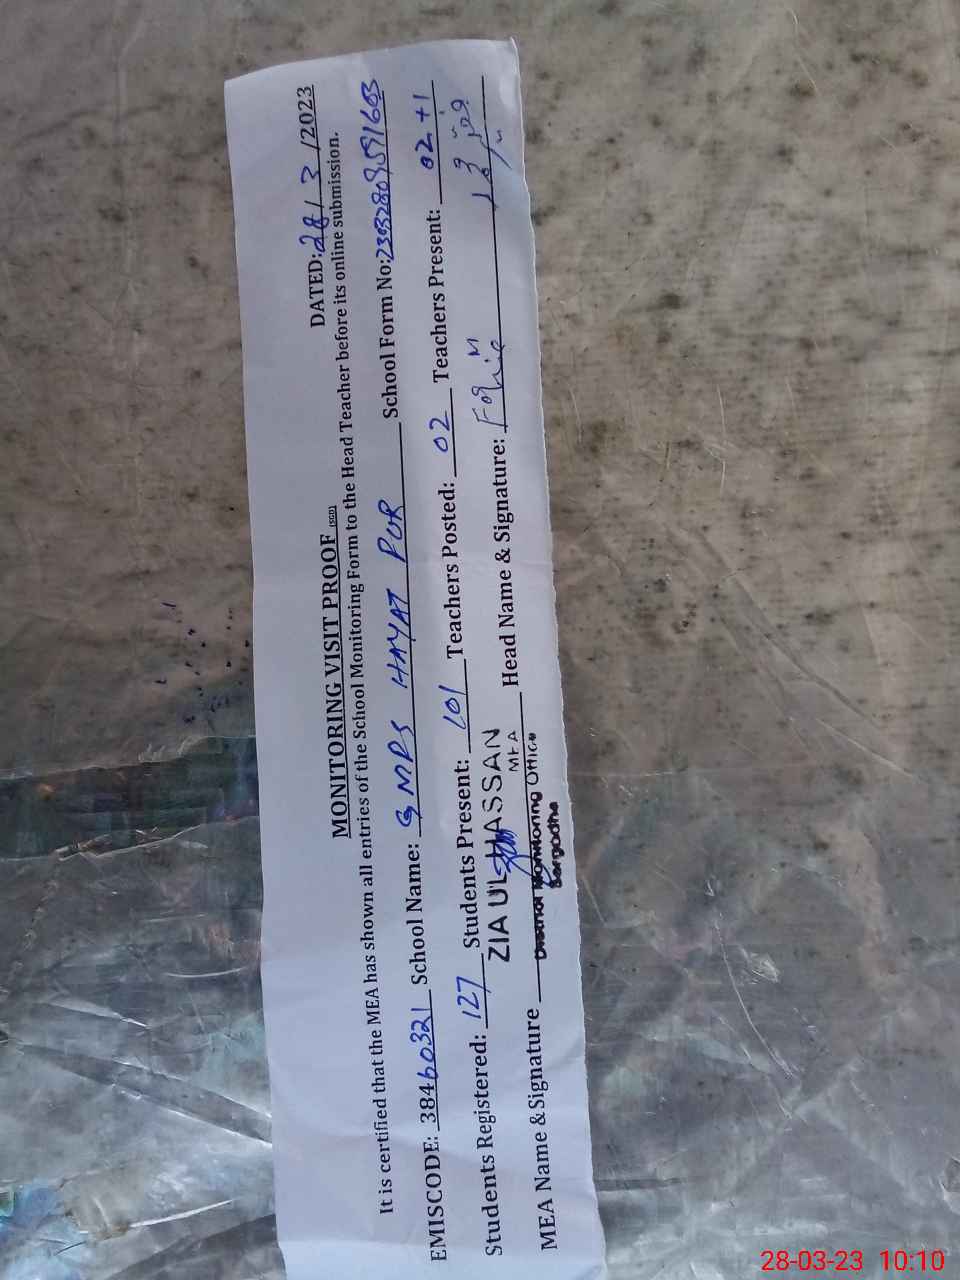 MONITORING VISIT PROOF (SGD)
DATED: 28/3/2023
It is certified that the MEA has shown all entries of the School Monitoring Form to the Head Teacher before its online submission.
EMISCODE: 38460321 School Name: GMPS HAYAT PUR School Form No:
Students Registered: 127 Students Present: 101 Teachers Posted: 02 Teachers Present: 02+1
ZIA UL HASSAN
MEA
MEA Name & Signature Head Name & Signature:
District Monitoring Office
Sargodha
28-03-23 10:10